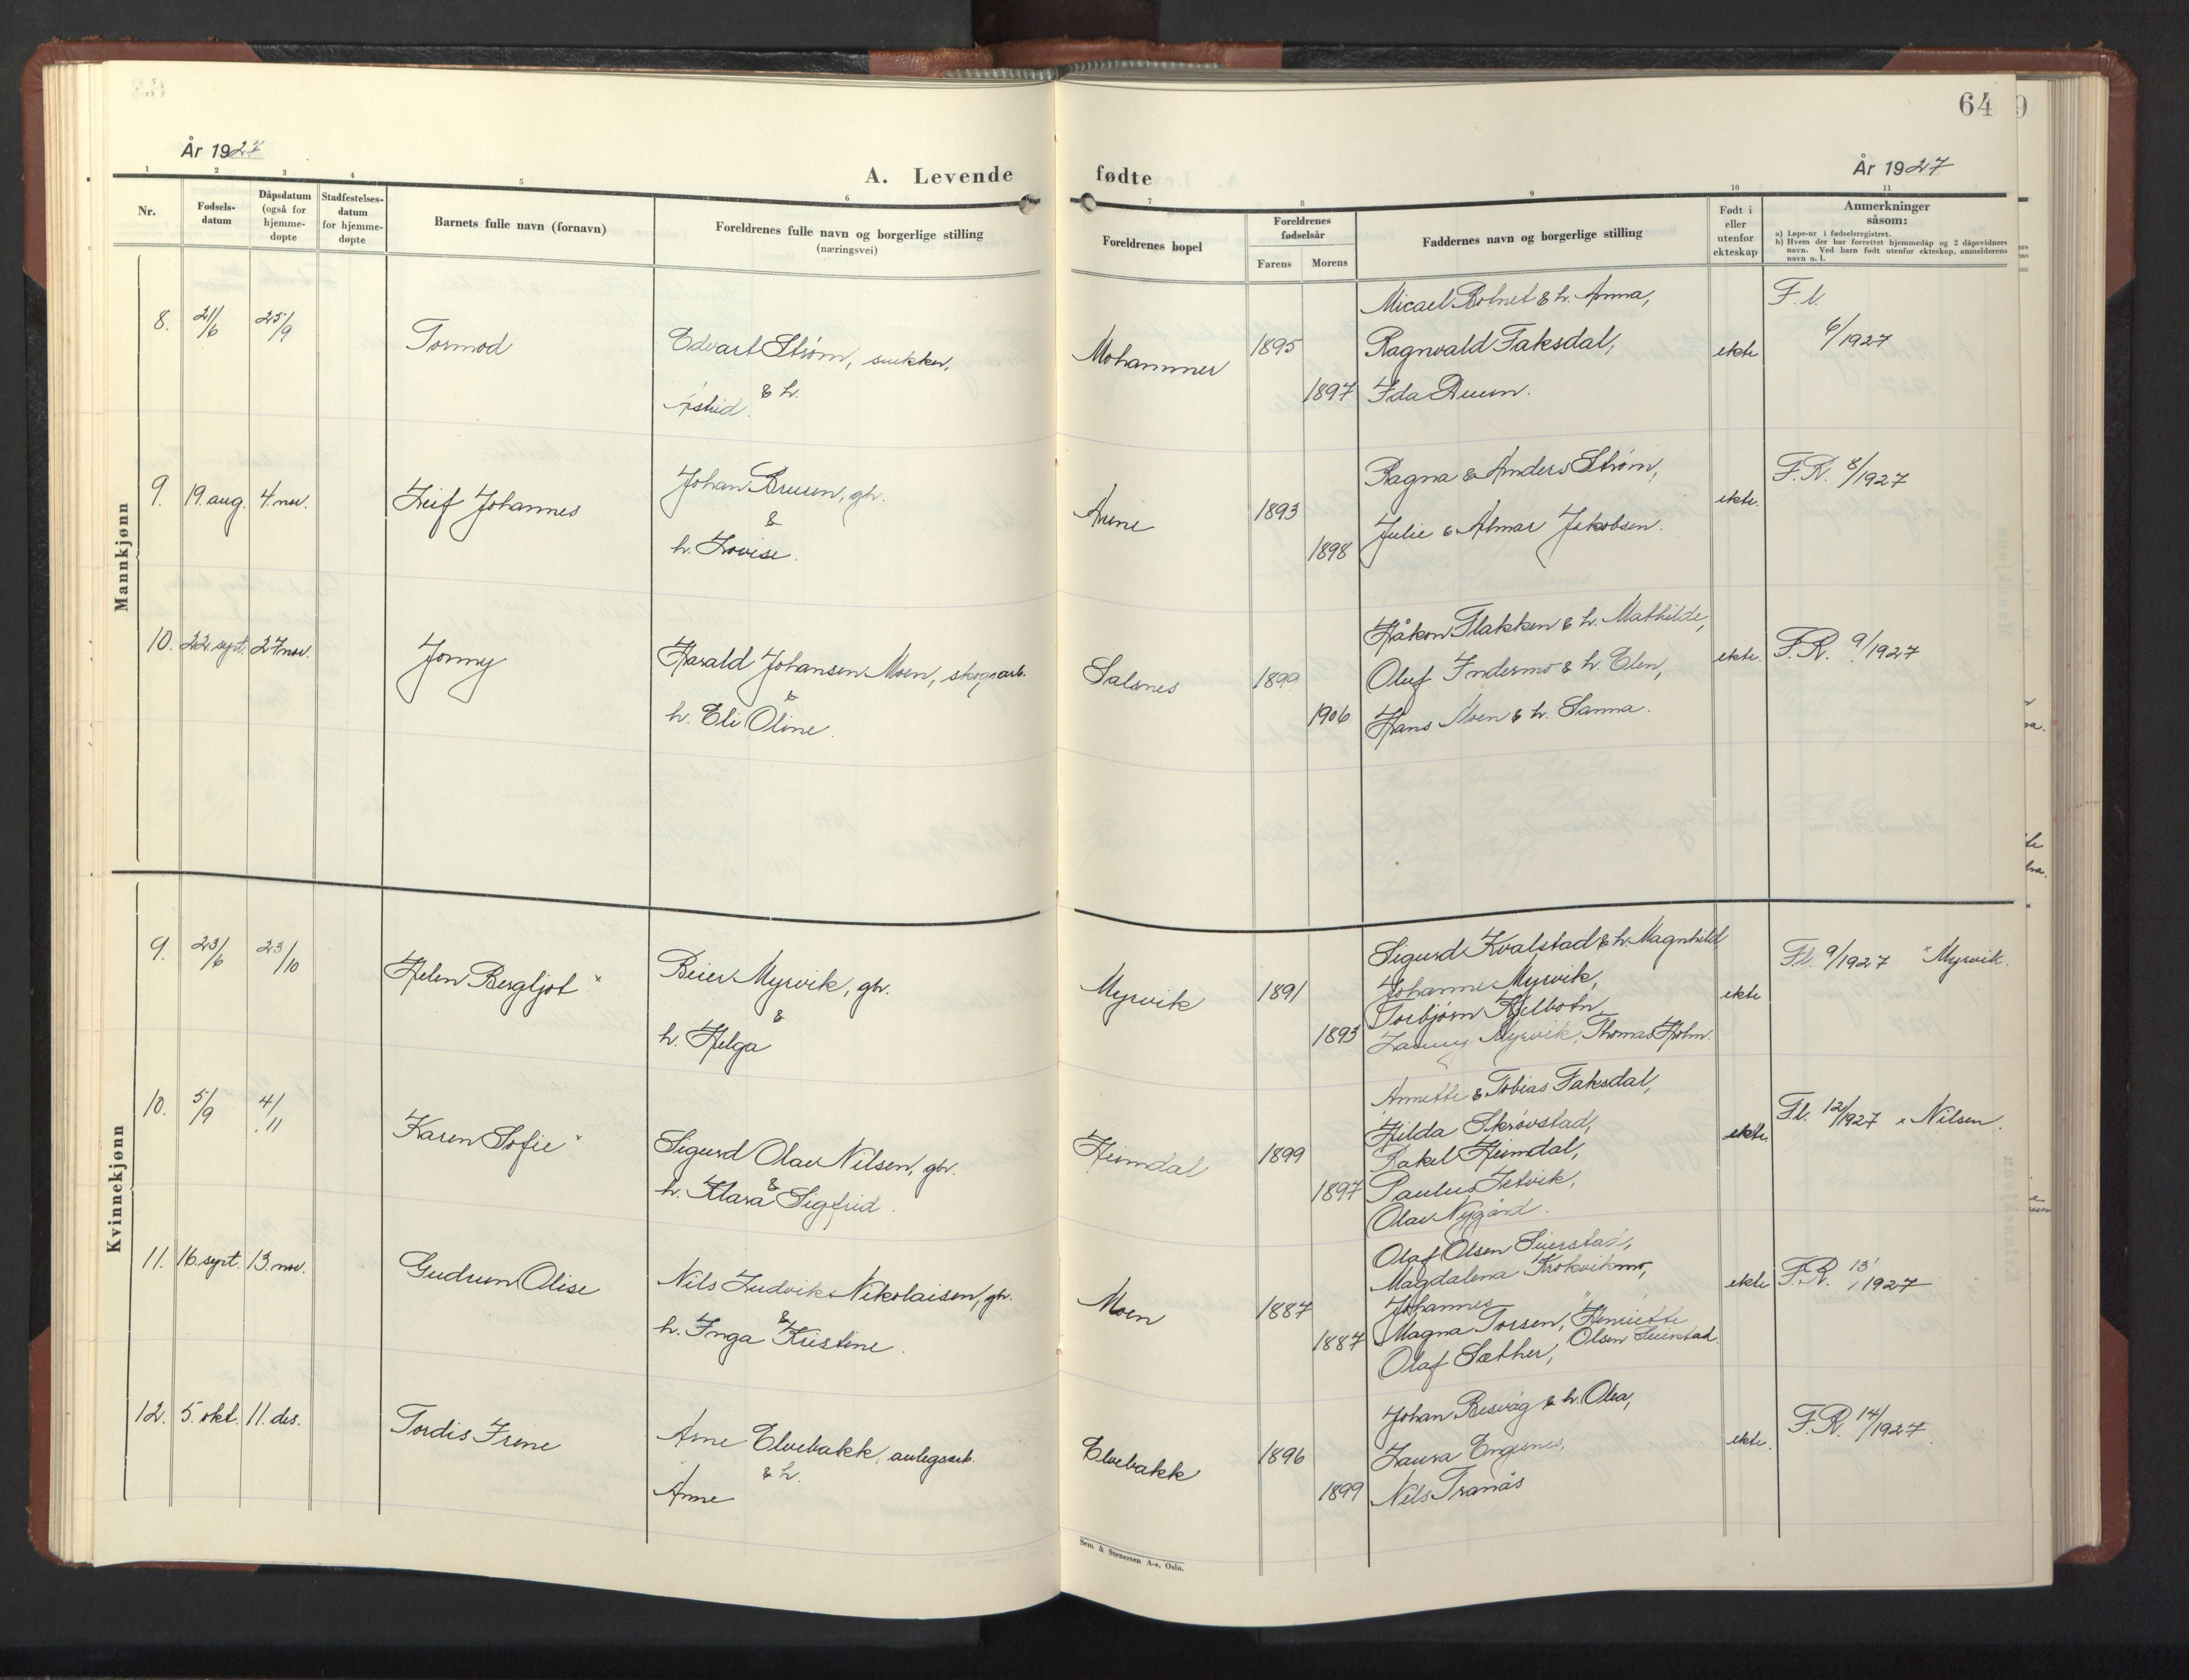 64
År 1927
A. Levende fødte
År 1927
1 2 3 4 5 6 7 8 9 10 11
Nr.
Fødsels-
datum
Dåpsdatum
(også for
hjemme-
døpte
Stadfestelses-
datum
for hjemme-
døpte
Barnets fulle navn (fornavn)
Foreldrenes fulle navn og borgerlige stilling
(næringsvei)
Foreldrenes bopel
Foreldrenes
fødselsår
Farens Morens
Faddernes navn og borgerlige stilling
Født i
eller
utenfor
ekteskap
Anmerkninger
såsom:
a) Løpe-nr i fødselsregistret.
b) Hvem der har forrettet hjemmedåp og 2 dåpsvidners
navn. Ved barn født utenfor ekteskap, anmelderens
navn o. l.
Mannkjønn
8. 21/6 25/9
Tormod
Edvart Strøm, snekker,
& h.
Astrid.
Mohammer
1895
1897
Micael Botnet & h. Anna,
Ragnvald Faksdal,
Ida Duun.
ekte
F. l.
6/1927
9. 19. aug. 4. nov.
Leif Johannes
Johan Bruun, gbr.
&
h. Lovise.
Aune
1893
1898
Ragna & Anders Strøm,
Julie & Almar Jakobsen.
ekte.
F. R. 8/1927
10. 22. sept. 27 nov.
Jonny
Harald Johansen Moen, skogsarb.
&
h. Eli Oline.
Salsnes
1899
1906
Håkon Flakken & h. Mathilde,
Oluf Indermo & h. Elen,
Hans Moen & h. Sanna.
ekte.
F. R. 9/1927
Kvinnekjønn
9. 23/6 23/10
Helen Bergljot ×
Beier Myrvik, gbr.
&
h. Helga
Myrvik
1891
1893
Sigurd Kvalstad & h. Magnhild
Johanne Myrvik,
Torbjørn Kjelbotn
Myrvik, Thomas Holm.
ekte
Fl. 9/1927 × Myrvik.
10. 5/9 4/11
Karen Sofie ×
Sigurd Olav Nilsen, gbr.
&
h. Klara Sigfrid.
Heimdal
1899
1897
Annette & Tobias Faksdal,
Hilda Skrøvstad,
Rakel Heimdal,
Paulus Setvik,
Olav Nygård.
ekte.
Fl. 12/1927 × Nilsen.
11. 16. sept. 13. nov.
Gudrun Alise
Nils Ludvik Nikolaisen, gbr.
&
h. Inga Kristine.
Moen
1887
1887
Olaf Olsen Seierstad,
Magdalena Krokvikmo,
Johannes
Magna Torsen, Henriette
Olaf Sæther, Olsen Seierstad.
ekte
F. R. 13/1927
12. 5. okt. 11. des.
Tordis Irene
Arne Elvebakk, anlegsarb.
& h.
Anne
Elvebakk
1896
1899
Johan Besvåg & h. Olea,
Laura Engesnes,
Nils Tranås
ekte.
F. R. 14/1927
Sem & Stenersen A-s, Oslo.